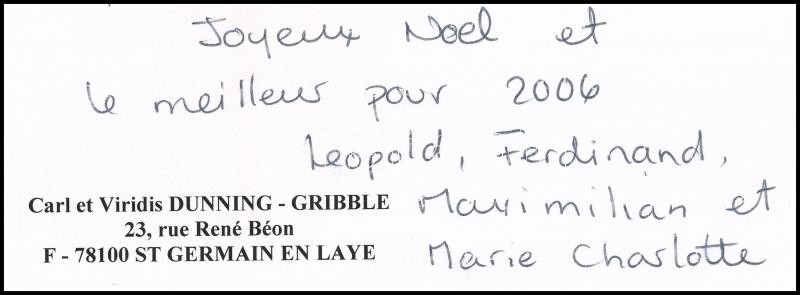 Joyeux Noel et
le meilleur pour 2006
Leopold, Ferdinand,
Maximilian et
Marie Charlotte
Carl et Viridis DUNNING - GRIBBLE
23, rue René Béon
F - 78100 ST GERMAIN EN LAYE